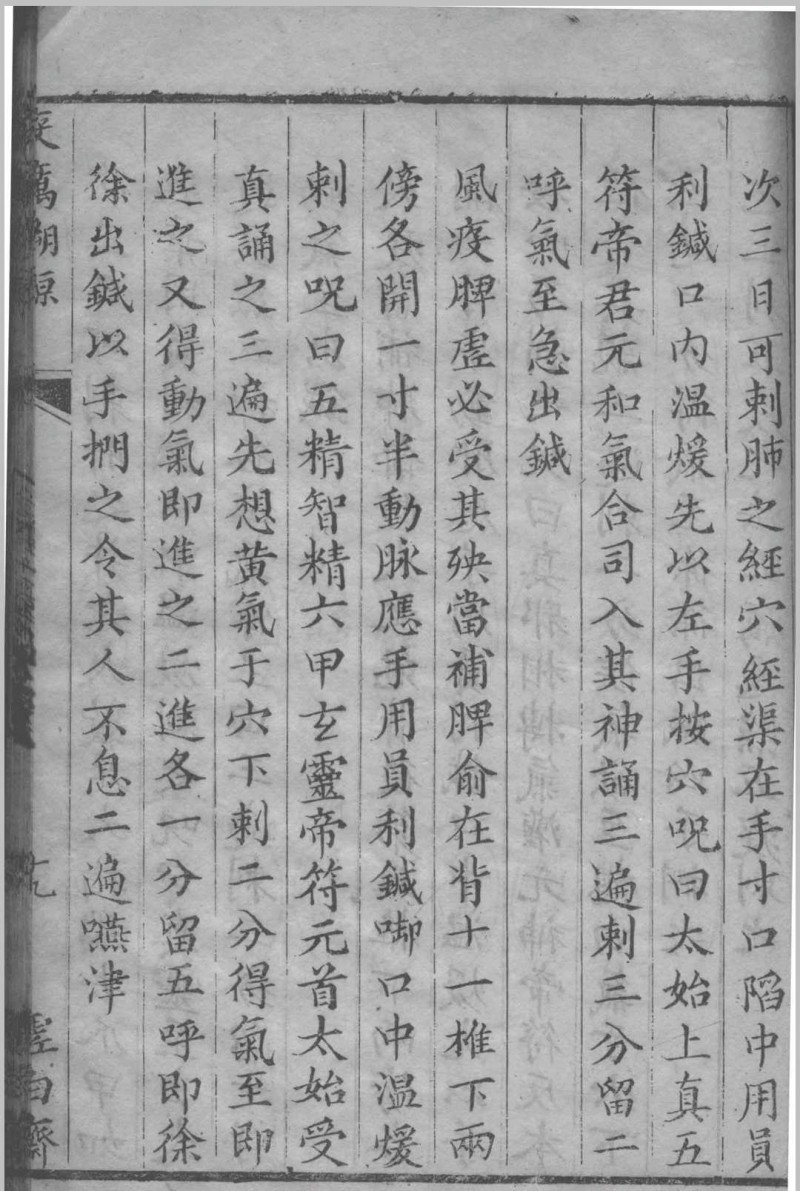 次三日可刺肺之經穴經渠在手寸口陷中用員
利鍼口内温煖先以左手按穴呪曰太始上真五
符帝君元和氣合司入其神誦三遍刺三分留二
呼氣至急出鍼
風疫脾虛必受其殃當補脾俞在背十一椎下兩
傍各開一寸半動脉應手用員利鍼啣口中温煖
刺之呪曰五精智精六甲玄靈帝符元首太始受
真誦之三遍先想黄氣于穴下刺二分得氣至即
進之又得動氣即進之二進各一分留五呼即徐
徐出鍼以手捫之令其人不息二遍嚥津
虛白齋